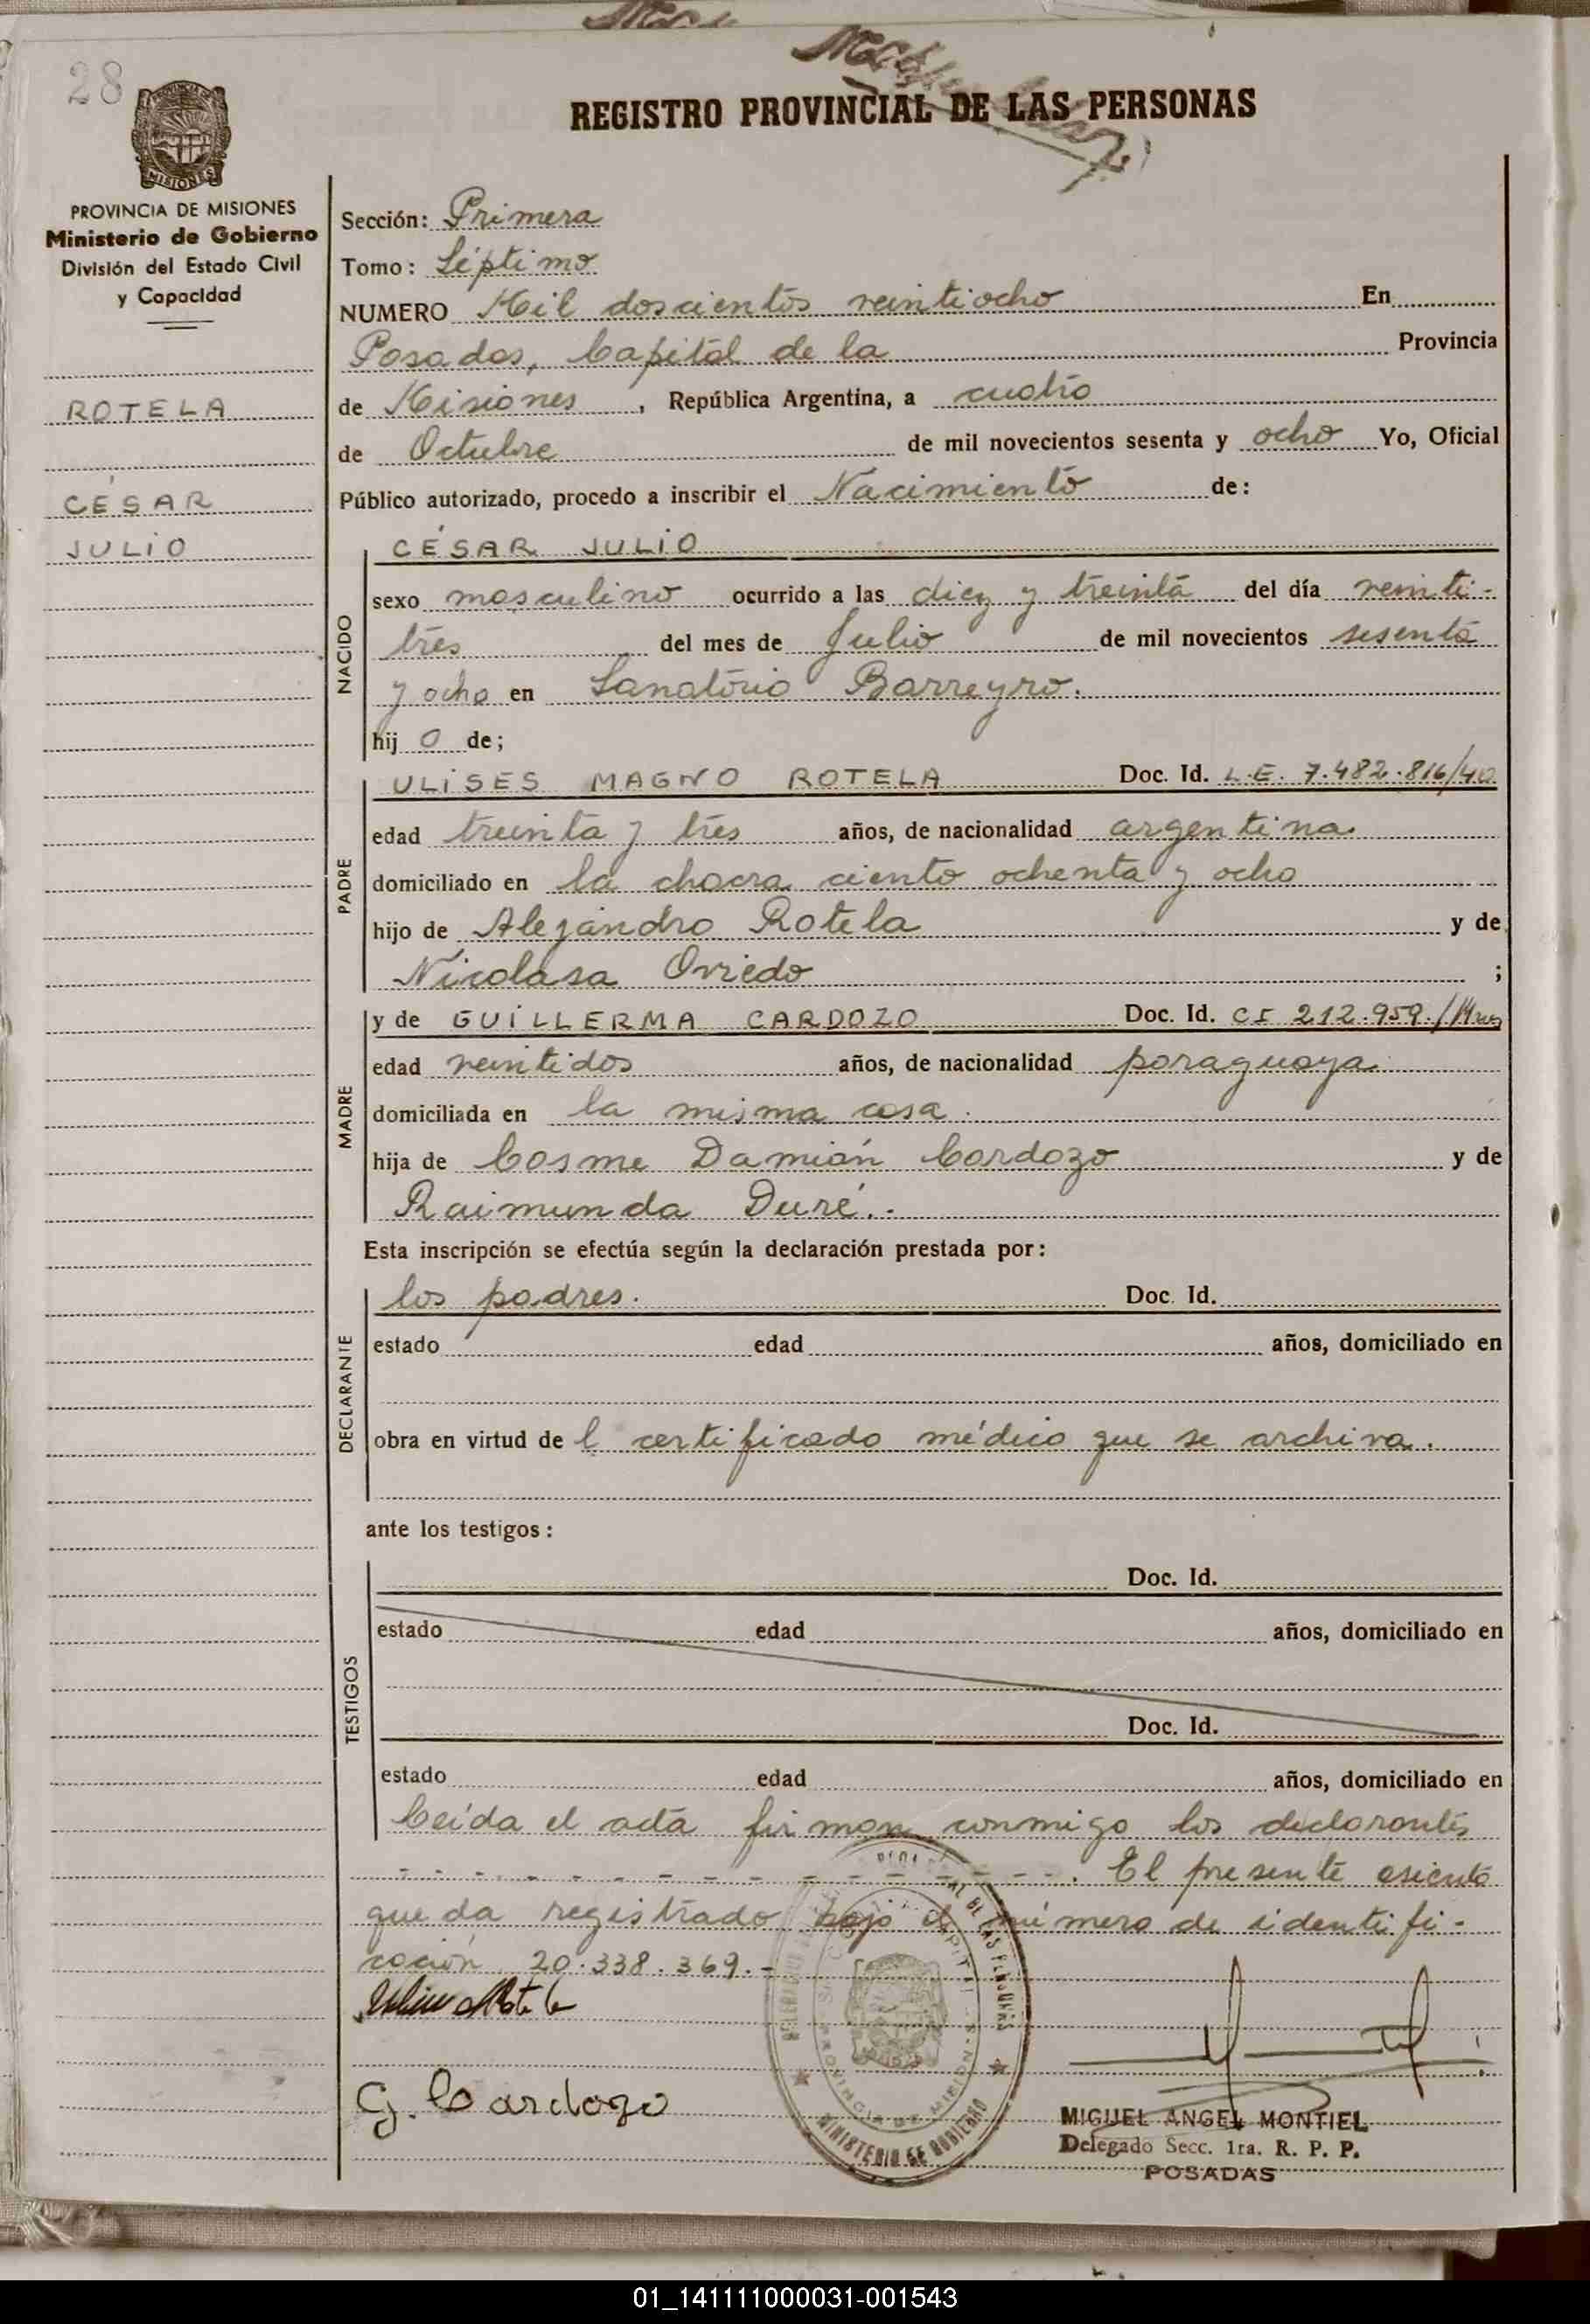 28
REGISTRO PROVINCIAL DE LAS PERSONAS
MISIONES
PROVINCIA DE MISIONES
Ministerio de Gobierno
División del Estado Civil
y Capacidad
ROTELA
CÉSAR
JULIO
Sección: Primera
Tomo: Séptimo
NUMERO Mil doscientos veintiocho En
Posadas, Capital de la Provincia
de Misiones, República Argentina, a cuatro
de Octubre de mil novecientos sesenta y ocho Yo, Oficial
Público autorizado, procedo a inscribir el Nacimiento de:
NACIDO
CÉSAR JULIO
sexo masculino ocurrido a las diez y treinta del día veinti-
trés del mes de Julio de mil novecientos sesenta
y ocho en Sanatorio Barreyro.
hijo de;
PADRE
ULISES MAGNO ROTELA Doc. Id. L.E. 7.482.816/40
edad treinta y tres años, de nacionalidad argentina
domiciliado en la chacra ciento ochenta y ocho
hijo de Alejandro Rotela y de
Nicolasa Oviedo ;
MADRE
y de GUILLERMA CARDOZO Doc. Id. CI 212.959./
edad veintidos años, de nacionalidad paraguaya
domiciliada en la misma casa.
hija de Cosme Damián Cardozo y de
Raimunda Duré.-
Esta inscripción se efectúa según la declaración prestada por:
DECLARANTE
los padres. Doc. Id.
estado edad años, domiciliado en
obra en virtud del certificado médico que se archiva.
ante los testigos:
TESTIGOS
Doc. Id.
estado edad años, domiciliado en
Doc. Id.
estado edad años, domiciliado en
Leída el acta firman conmigo los declarantes
- - - - - - - - - - - - - -. El presente asiento
queda registrado bajo el número de identifi-
cación 20.338.369.-
G. Cardozo
PROVINCIA DE MISIONES
MINISTERIO DE GOBIERNO
MIGUEL ANGEL MONTIEL
Delegado Secc. 1ra. R. P. P.
POSADAS
01_141111000031-001543